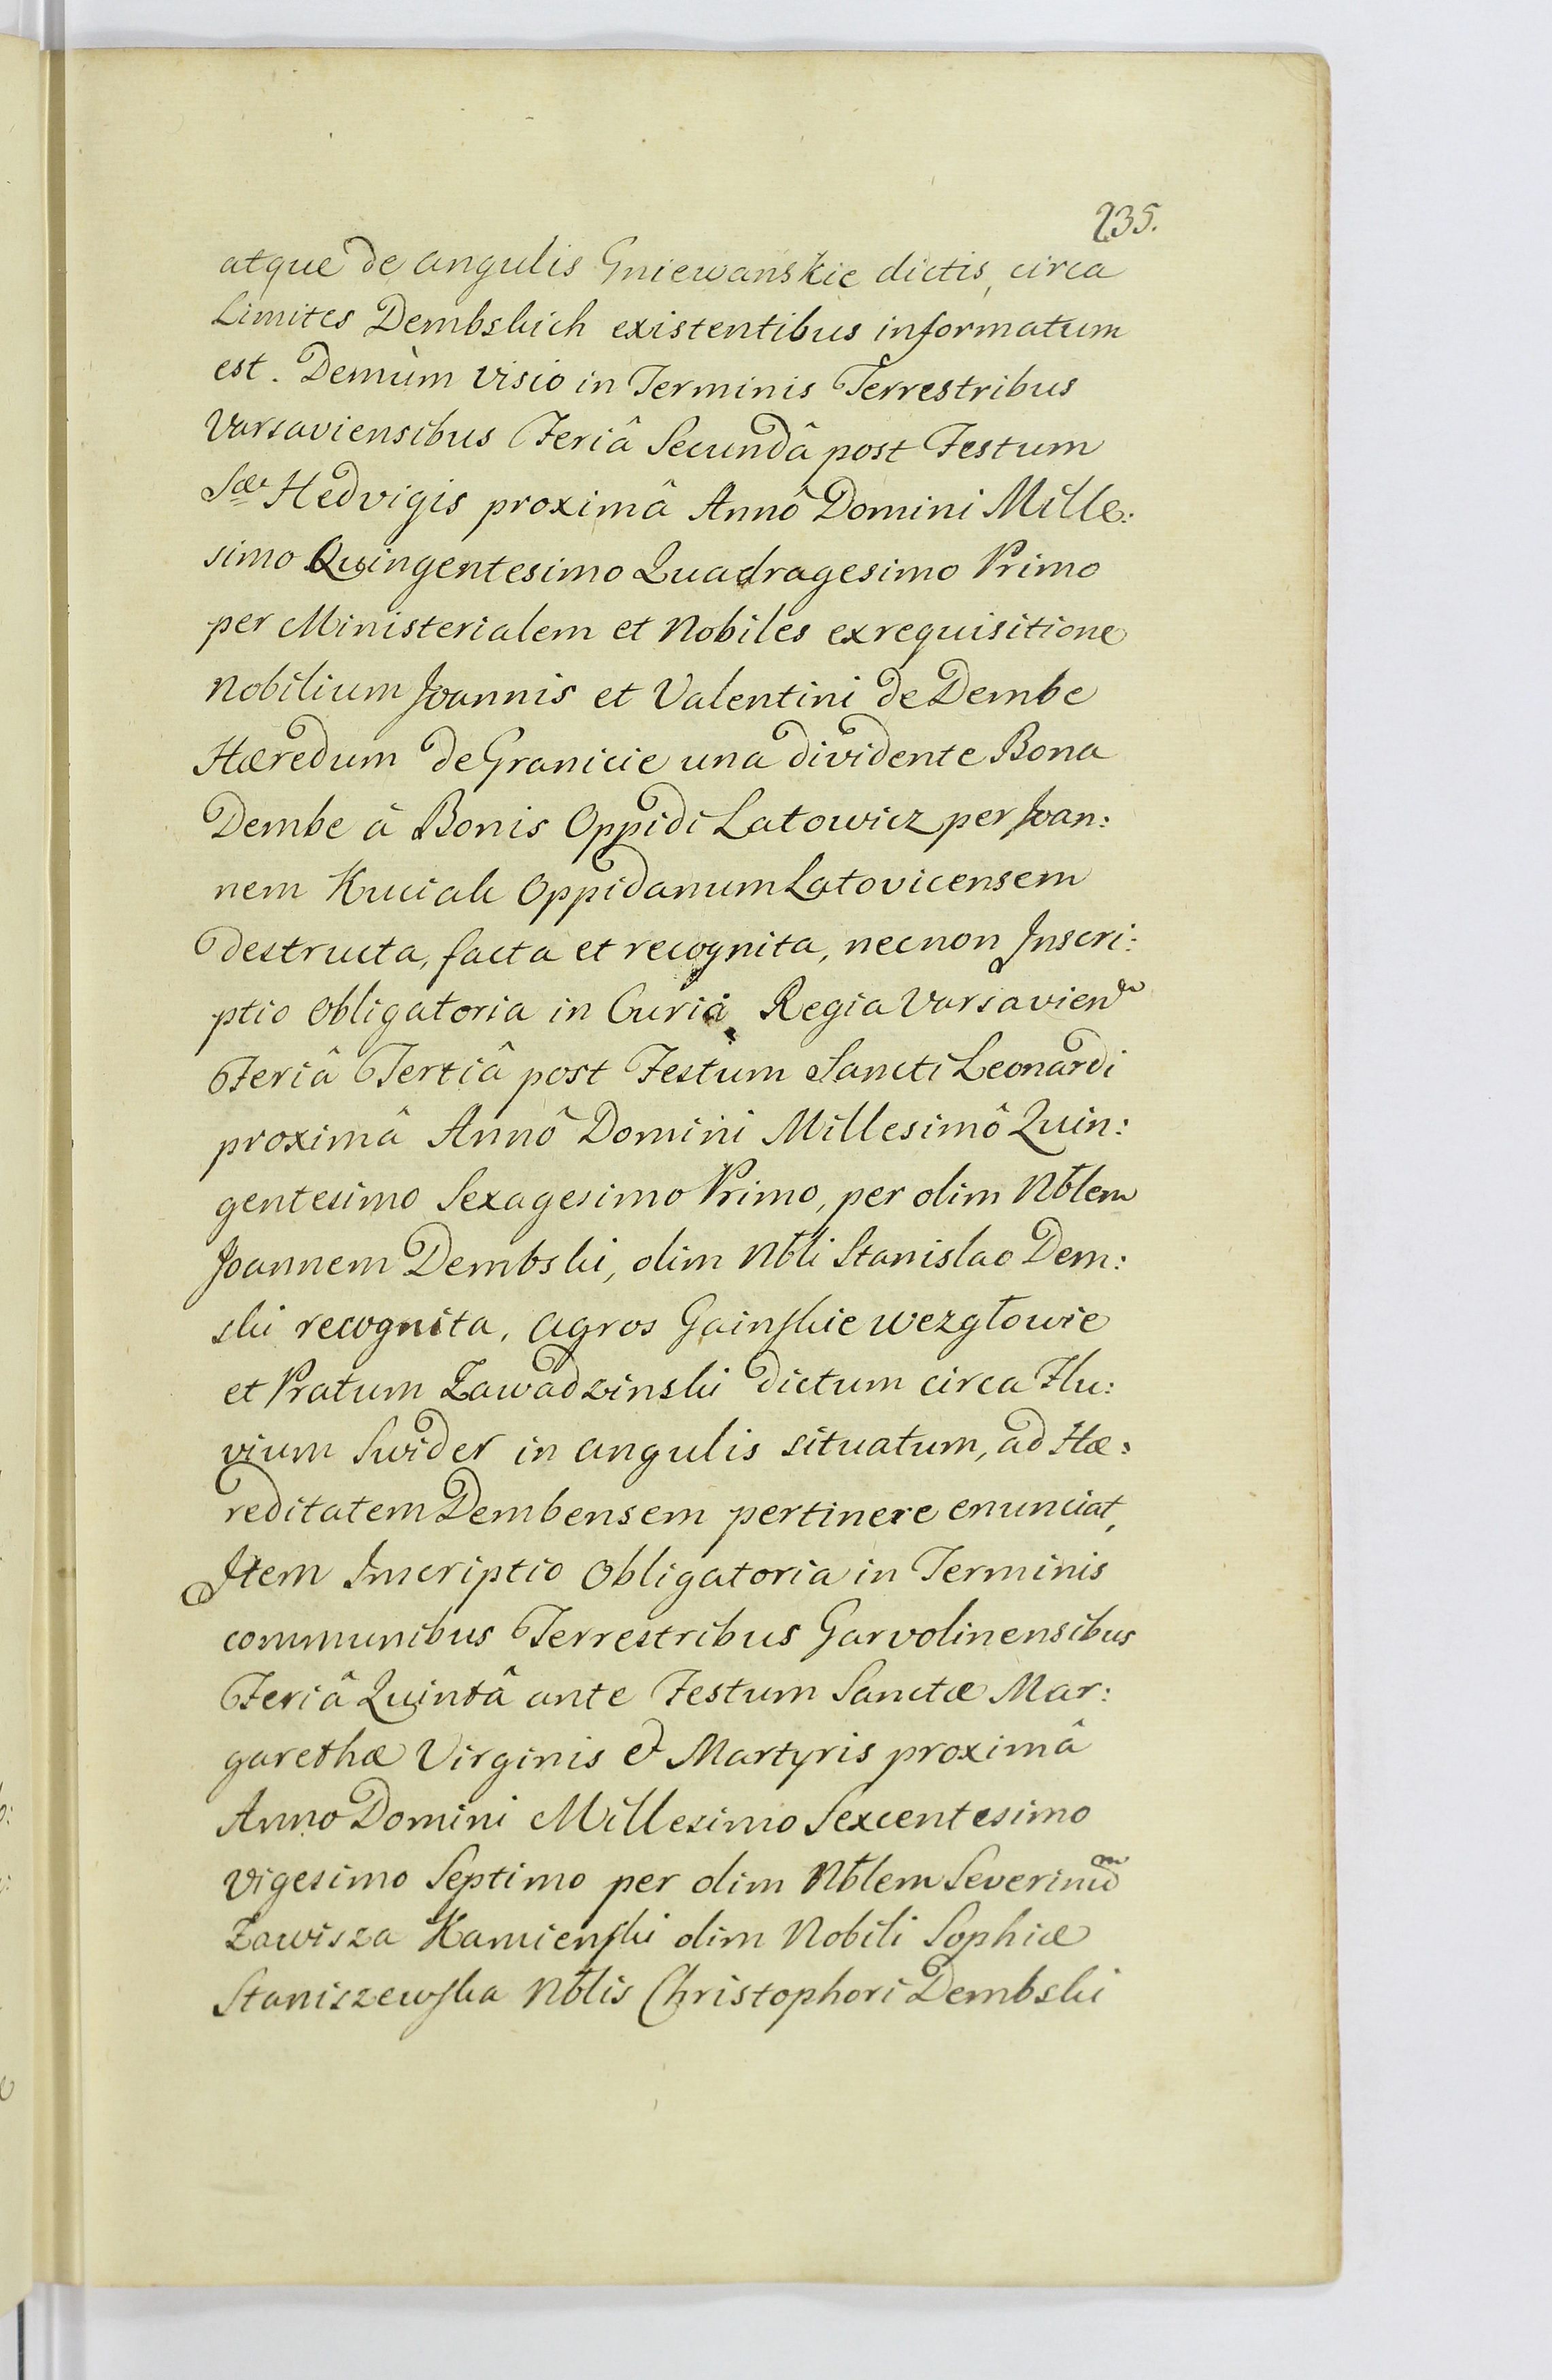 235.
atque de angulis Gniewańskie dictis, circa
Limites Dembskich existentibus informatum
est. Demùm visio in Terminis Terrestribus
Varsaviensibus Feriâ Secundâ post Festum
Sæ Hedvigis proximâ Annô Domini Mille:
simo Quingentesimo Quadragesimo Primo
per Ministerialem et Nobiles ex requisitione
Nobilium Joannis et Valentini de Dembe
Hæredum de Granicie una dividente Bona
Dembe à Bonis Oppidi Latowicz per Joan:
nem Kuciak Oppidanum Latovicensem
destructa, facta et recognita, necnon Inscri:
ptio Obligatoria in Curiâ Regia Varsavien
Feriâ Tertiâ post Festum Sancti Leonardi
proximâ Annô Domini Millesimô Quin:
gentesimo Sexagesimo Primo, per olim Nblem
Joannem Dembski, olim Nbli Stanislao Dem:
ski recognita, agros Gainskie wezgłowie
et Pratum Zawadzinski dictum circa Flu:
vium Swider in angulis situatum, ad Hæ:
reditatem Dembensem pertinere enunciat,
Item Inscriptio Obligatoria in Terminis
communibus Terrestribus Garvolinensibus
Feriâ Quintâ ante Festum Sanctæ Mar:
garethæ Virginis & Martyris proximâ
Anno Domini Millesimo Sexcentesimo
Vigesimo Septimo per olim Nblem Severinum
Zawisza Kamienski olim Nobili Sophiæ
Staniszewska Nblis Christophori Dembski